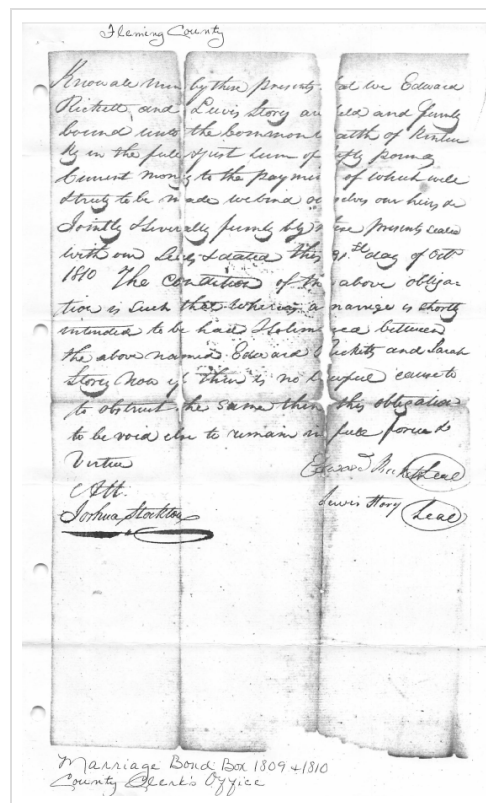 Fleming County
Know all men by these presents that we Edward
Rickett, and Lewis Story are held and firmly
bound unto the Commonwealth of Kentuc
ky in the full & just sum of fifty pound
Current money to the payment of which well
& truly to be made we bind ourselves our heirs &c
Jointly & severally firmly by these presents sealed
with our Seals & dated this 31st day of Octr
1810 The condition of the above obliga-
tion is such that whereas a marrige is shortly
intended to be had & solemnized between
the above named Edward Ricketts and Sarah
Story Now if there is no lawful cause to
to obstruct the same then this obligation
to be void else to remain in full force &
Virtue
Att.
Joshua Stockton
Edward Ricketts Seal
Lewis Story Seal
Marriage Bond Box 1809 & 1810
County Clerk's Office